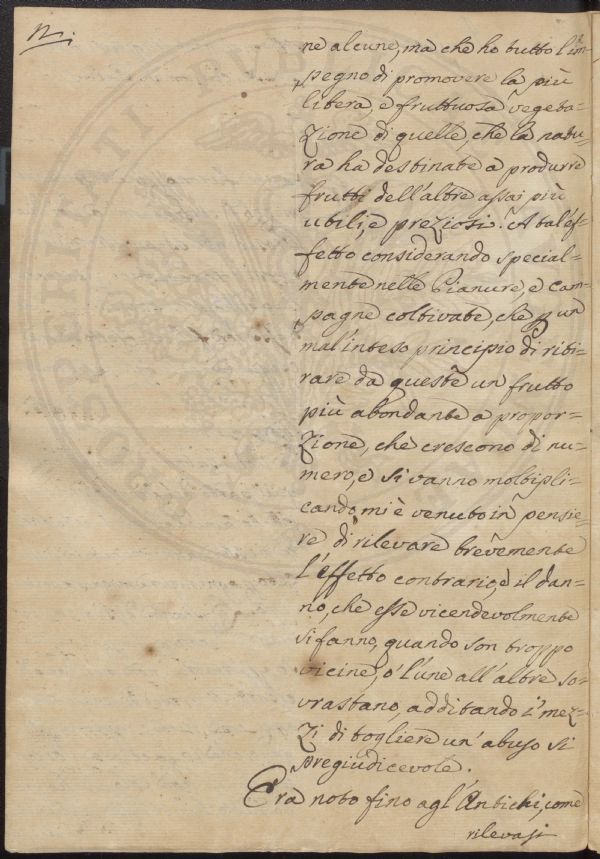 n.
ne alcune, ma che ho tutto l'im-
pegno di promovere la più
libera, e fruttuosa vegeta=
zione di quelle, che la natu-
ra ha destinate a produrre
frutti dell'altre assai più
utili, e preziosi. A tal'ef-
fetto considerando special=
mente nelle Pianure, e cam-
pagne coltivate, che p un
mal'inteso principio di riti-
rare da queste un frutto
più abondante a propor=
zione, che crescono di nu-
mero, e si vanno moltipli-
cando, mi è venuto in pensie-
re di rilevare brevemente
l'effetto contrario, e il dan-
no, che esse vicendevolmente
si fanno, quando son troppo
vicine, o l'une all'altre so-
vrastano, additando i mez-
zi di togliere un'abuso si
pregiudicevole.
Era noto fino agl'Antichi, come
rilevasi